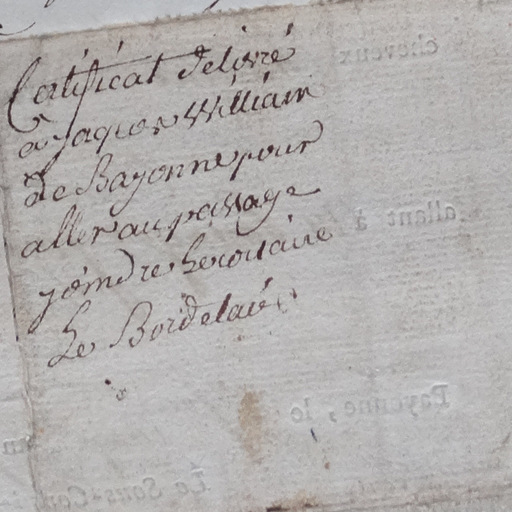 Certificat delivré
à Jaques William
de Bayonne pour
aller au passage
joindre le corsaire
Le Bordelais
cheveux
allant à
Bayonne, le
Le Sous-Com